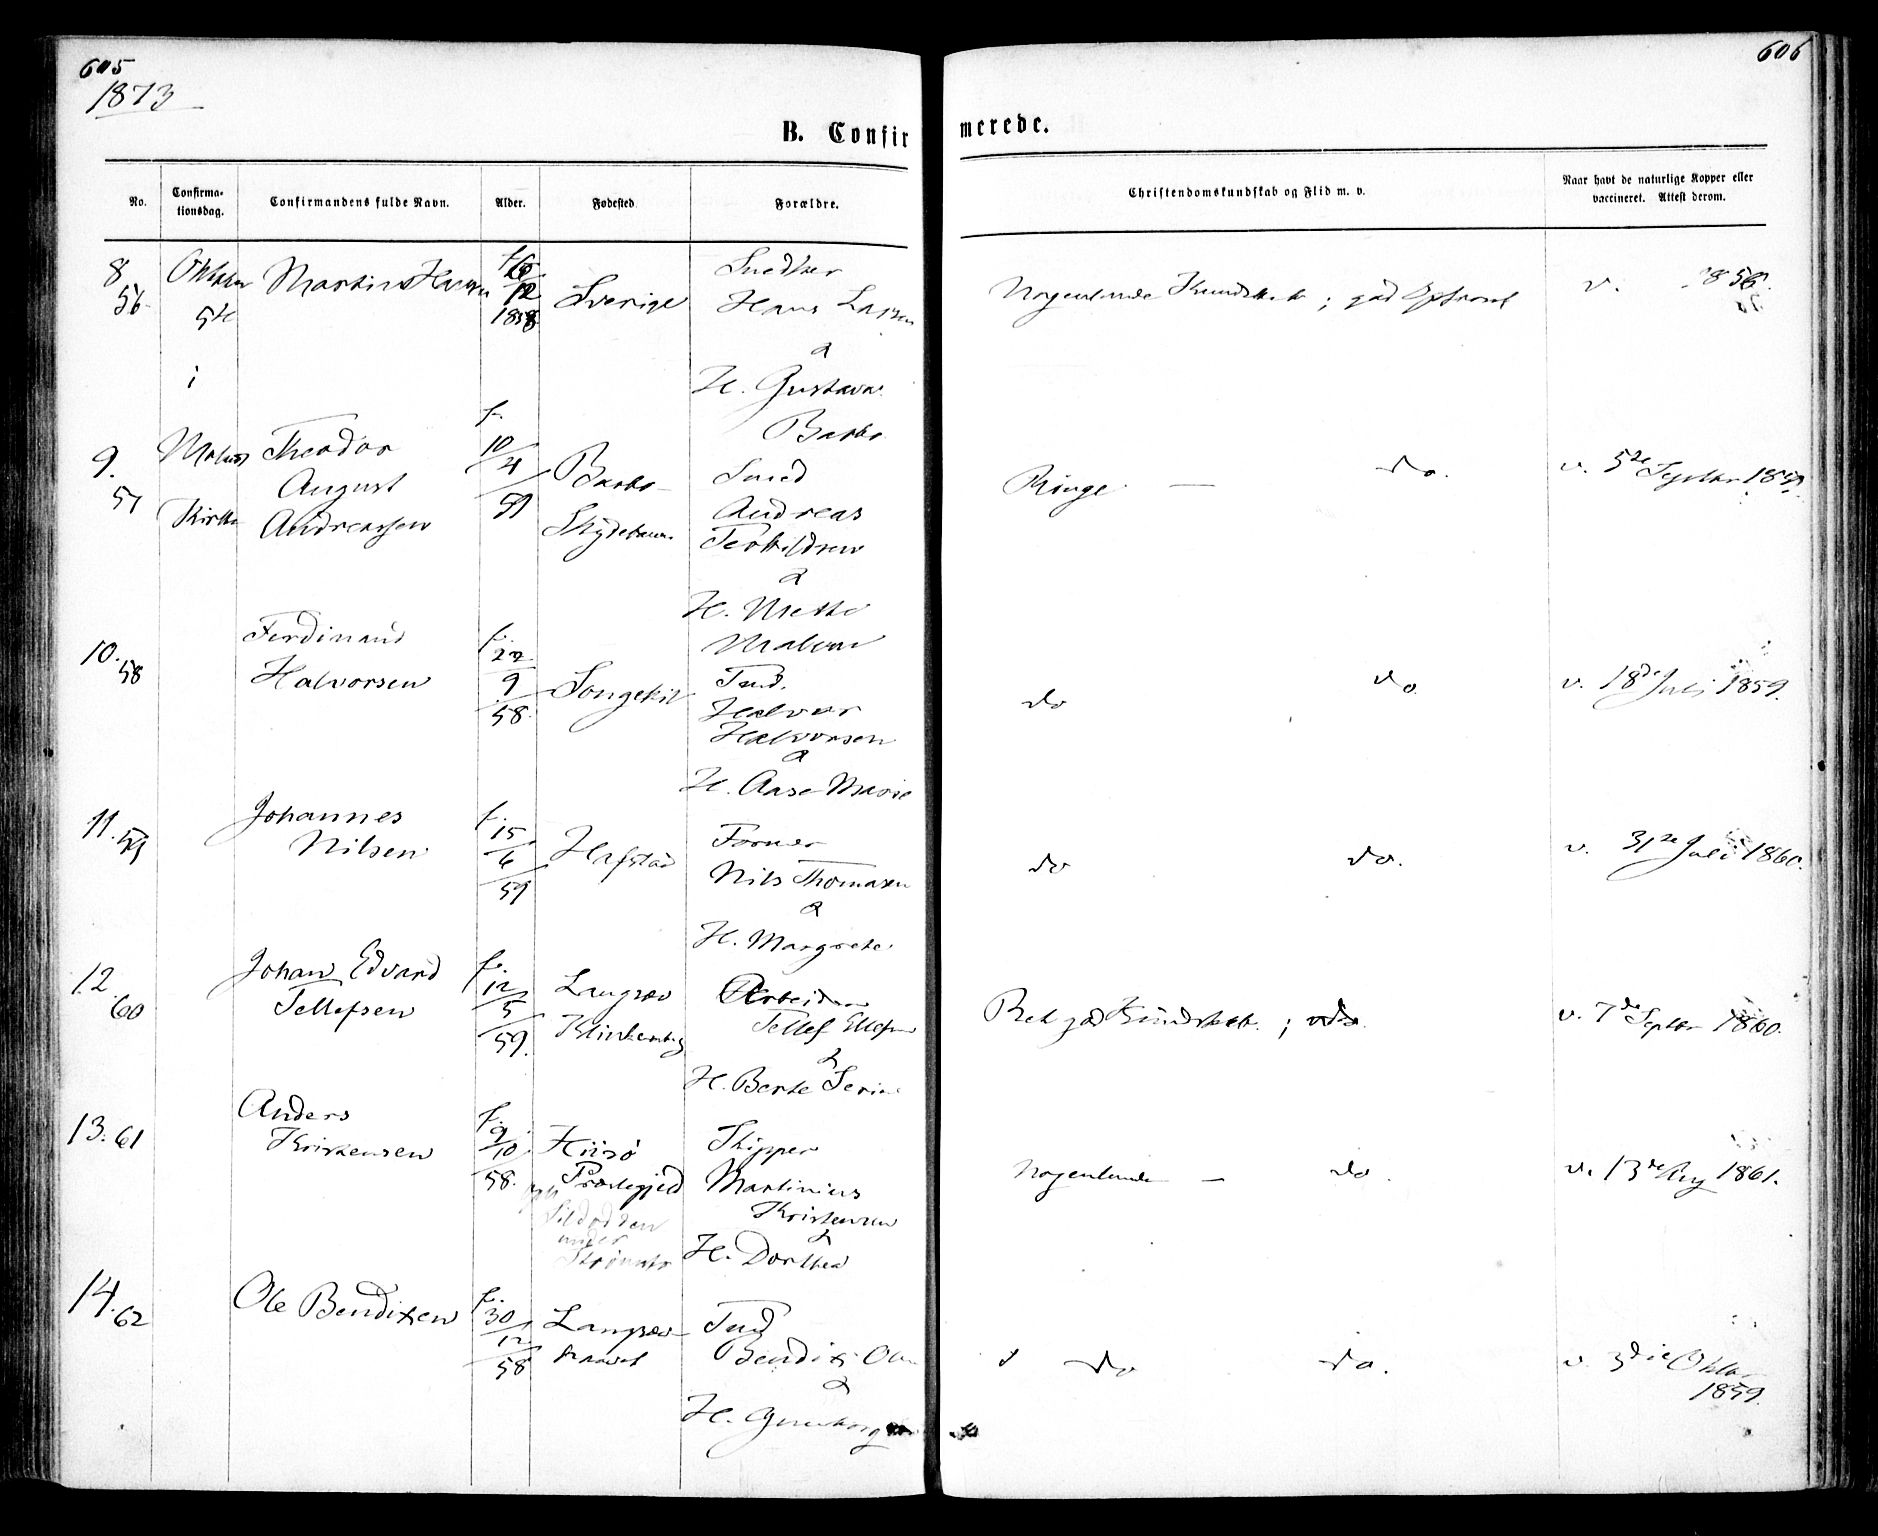 605
1873
606
B. Confirmerede.
No.
Confirma-
tionsdag.
Confirmandens fulde Navn.
Alder.
Fødested.
Forældre.
Christendomskundskab og Flid m. v.
Naar havt de naturlige Kopper eller
vaccineret. Attest derom.
8
56
5te
i
Martin Hansen
f.
12
1858
Sverige
Snedker
Hans Larsen
&
H. Gustava
Barbo
Nogenlunde Kundskab; god Opførsel
v.
9.
57
Kirke
Theodor
August
Andreassen
f.
10/4
59
Barbo
Smed
Andreas
Terkildsen
&
H. Mette
Malene
Ringe — do.
v. 5te Septbr
10.
58
Ferdinand
Halvorsen
f.
22
9
58
Songekil
Tmd.
Halvor
Halvorsen
&
H. Aase Marie
do do
v. 18de Juli 1859.
11.
59
Johannes
Nilsen
f.
15
6
59
Hafstad
Former
Nils Thomasen
&
H. Margrete
do do.
v. 31te Juli 1860.
12.
60
Johan Edvard
Tellefsen
f.
12
5
59.
Langsæv
Klinkenberg
Arbeider
Tellef Ellefsen
&
H. Berte Serine
Bet god Kundskab; do.
v. 7de Septbr 1860.
13. 61
Anders
Kristensen
f.
9
10
58.
Hisø
Præstegjeld
under
Skipper
Martinius
Kristensen
&
H. Dorthea
Nogenlunde — do.
v. 13de Aug 1861.
14.
62
Ole Bendixen
f.
30
12
58
Langsæv
Tmd
Bendix Olsen
&
H. Gunborg
do do.
v. 3die Oktbr
1859.